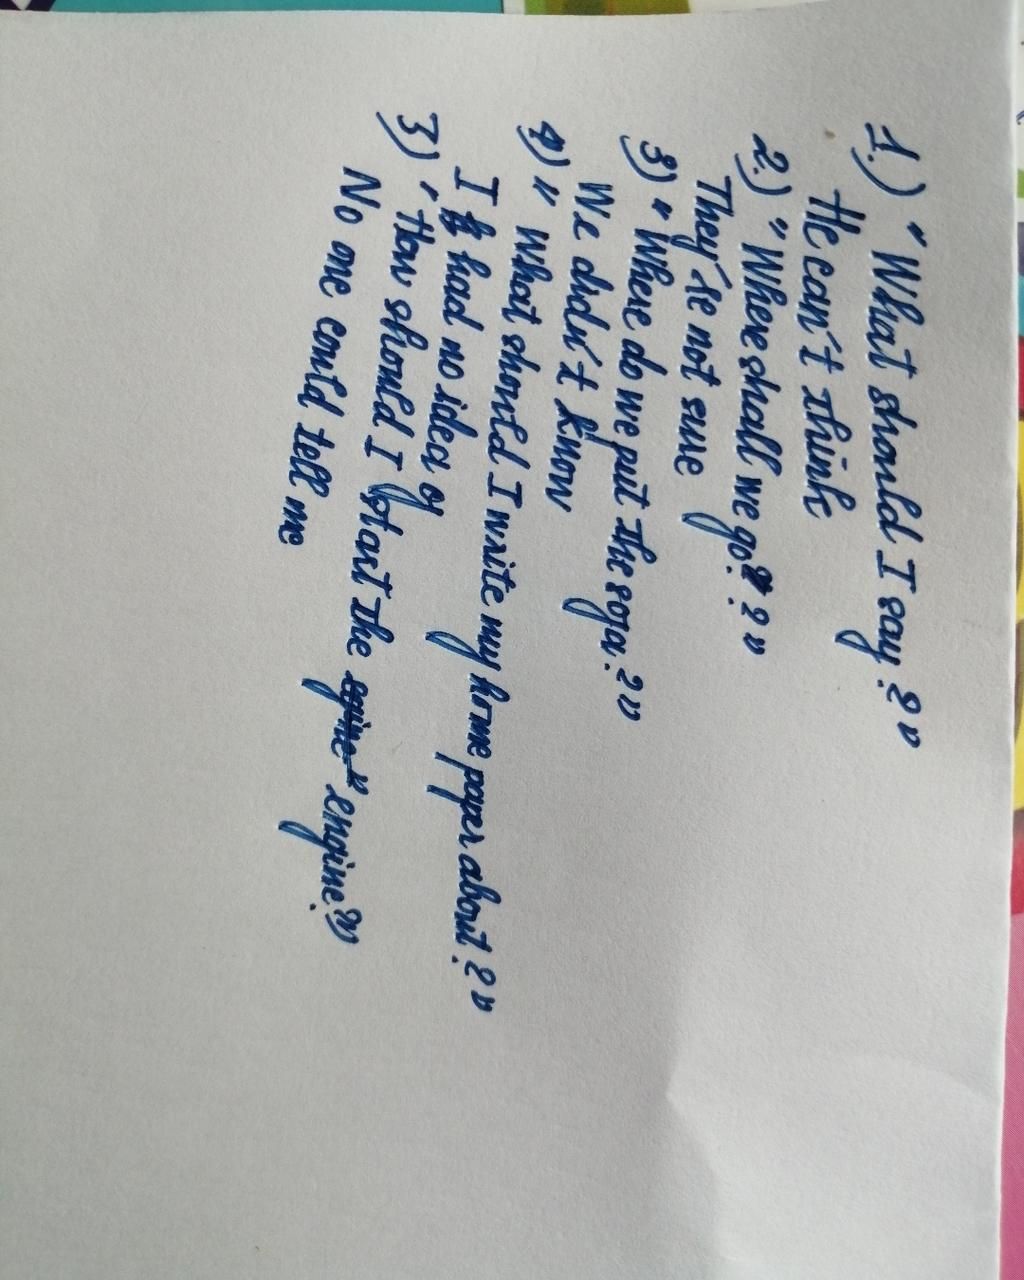 1.) "What should I say?"
He can't think
2.) "Where shall we go??"
They're not sure
3) "Where do we put the sofa?"
We didn't know
4) "What should I write my home paper about?"
I had no idea of
3) "How should I start the engine?"
No one could tell me